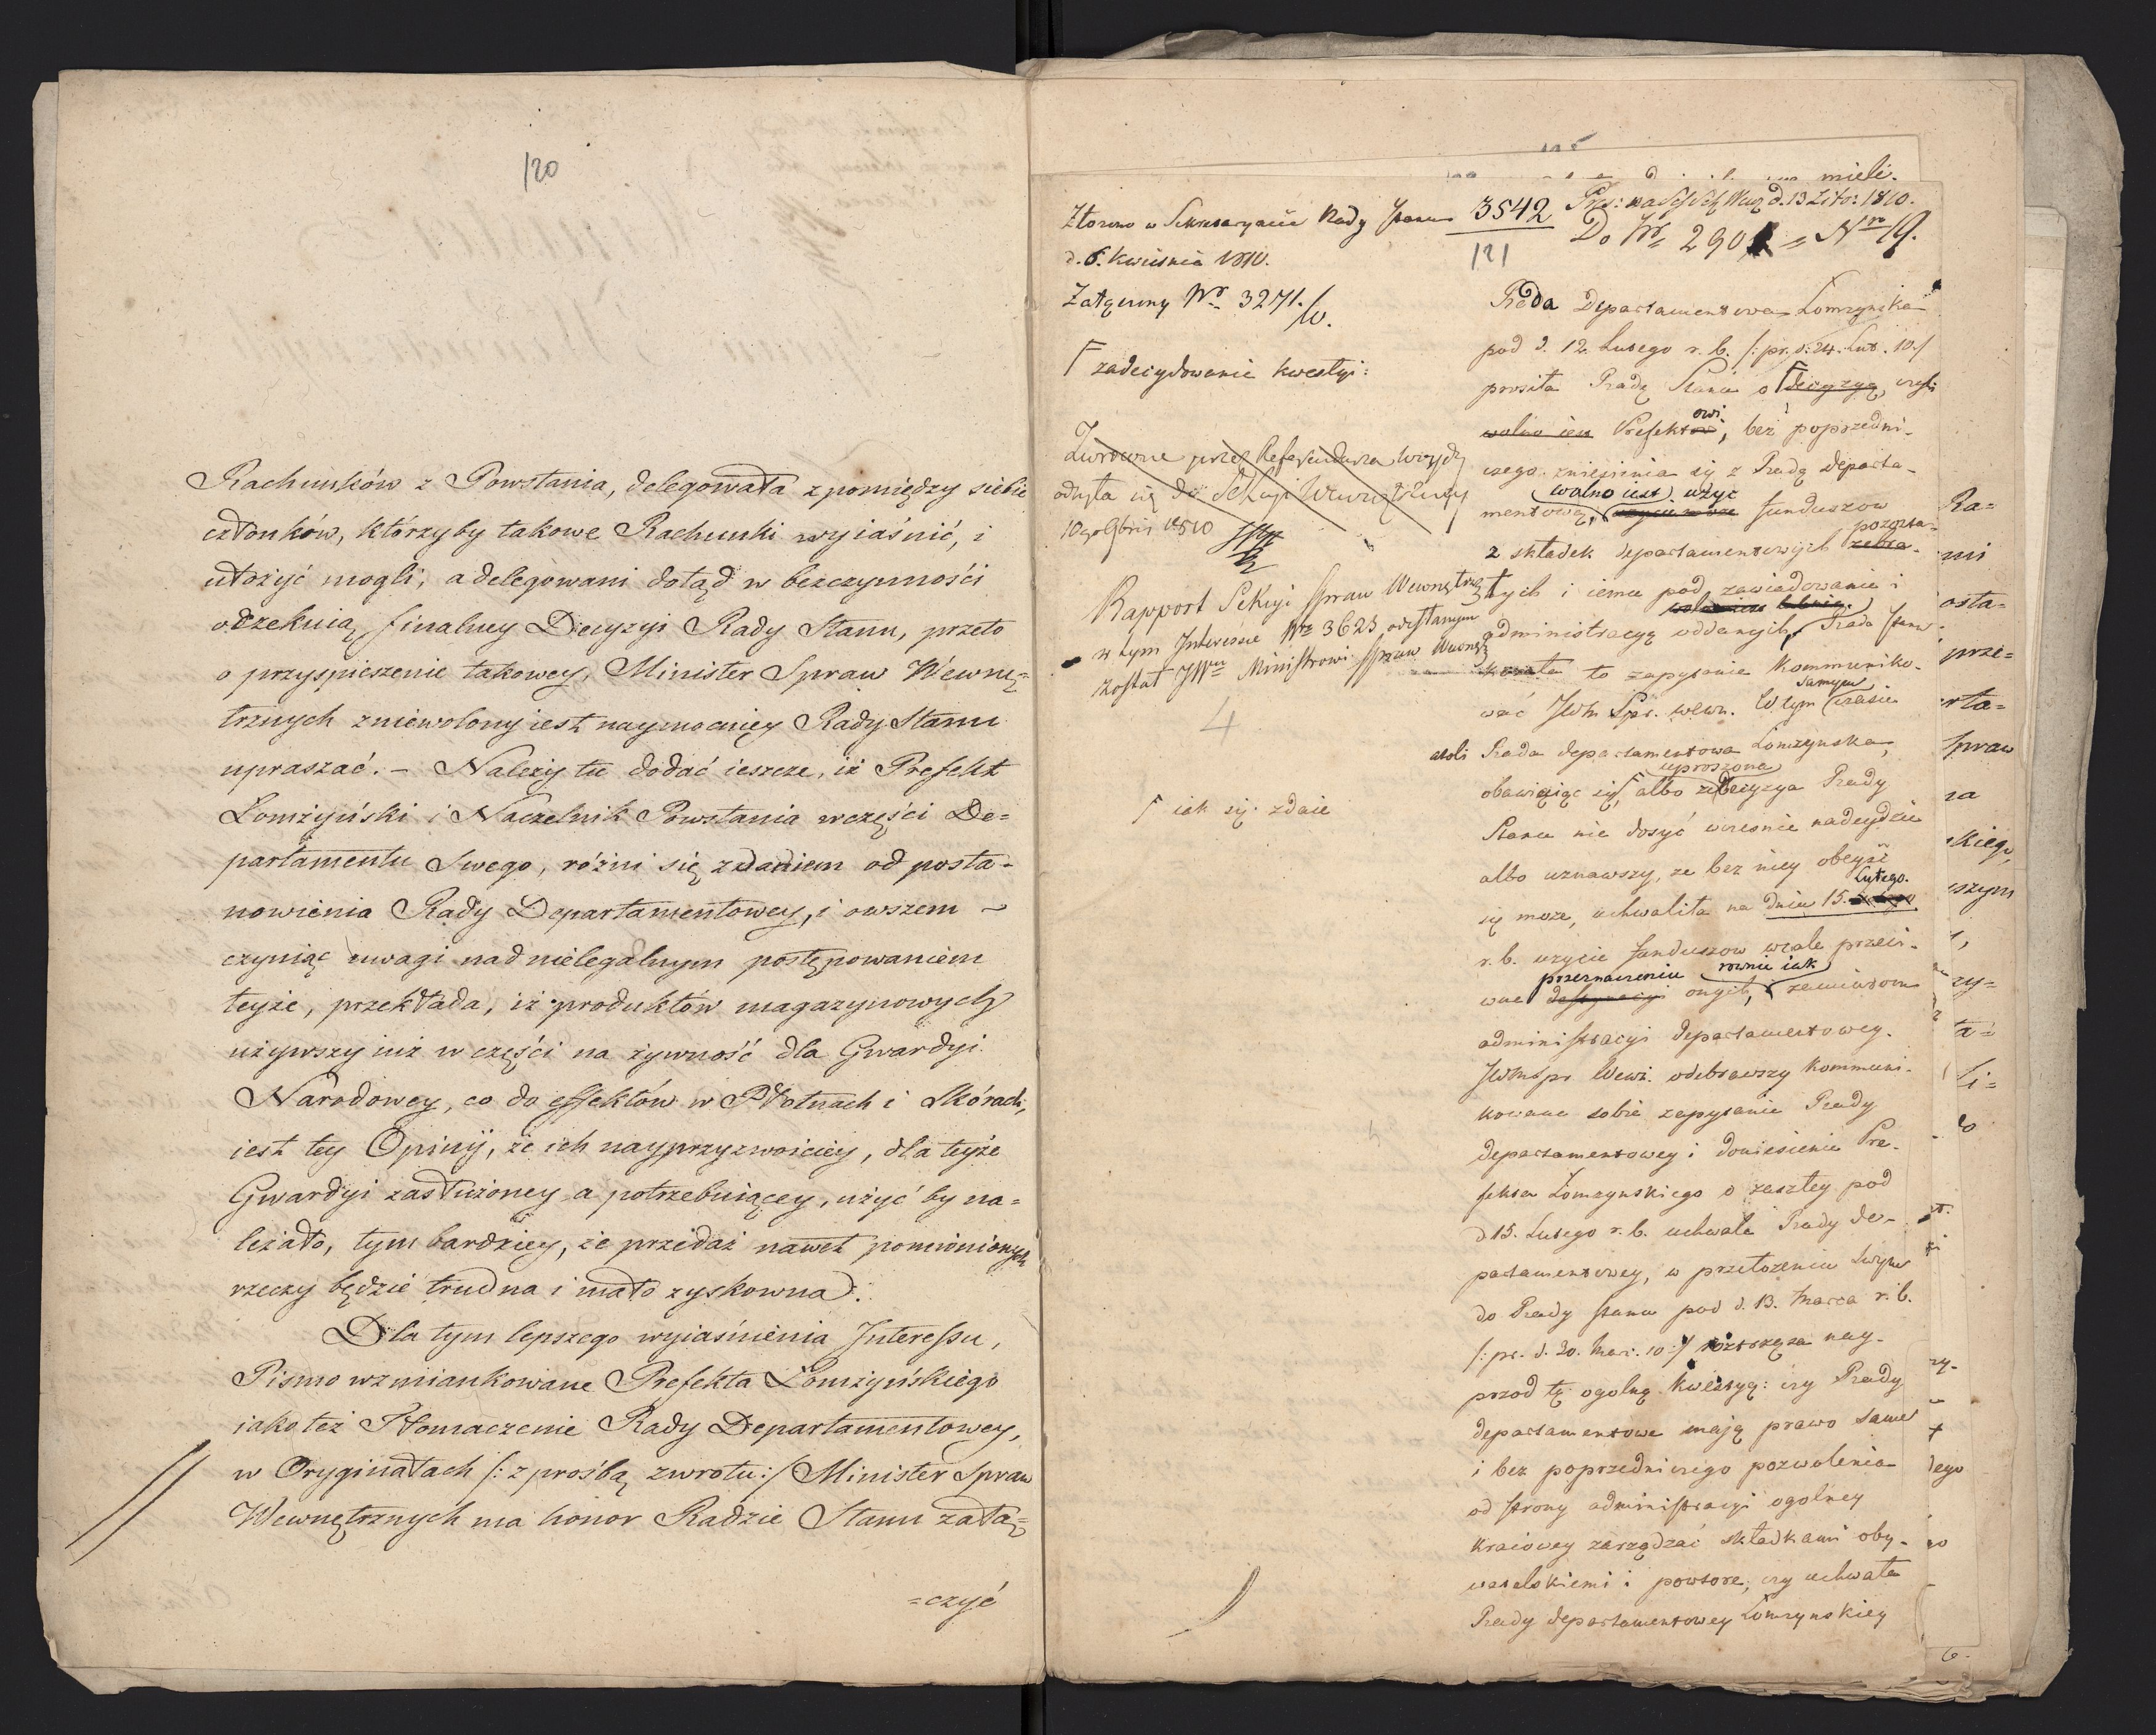 120
Rachunków z Powstania, delegowała z pomiędzy siebie
członków, którzyby takowe Rachunki wyiaśnić, i
ułożyć mogli; a delegowani dotąd w bezczynności
oczekuią finalney Decyzyi Rady Stanu, przeto
o przyspieszenie takowey, Minister Spraw Wewnę=
trznych zniewolony iest naymocniey Rady Stanu
upraszać. – Należy tu dodać ieszcze, iż Prefekt
Łomżyński i Naczelnik Powstania w części De=
partamentu Swego, różni się zdaniem od posta=
nowienia Rady Departamentowey, i owszem –
czyniąc uwagi nad nielegalnym postępowaniem
teyże, przekłada, iż produktów magazynowych
używszy iuż w części na żywność dla Gwardyi
Narodowey, co do effektów w Płotnach i Skórach,
iest tey Opinij, że ich nayprzyzwoiciey, dla teyże
Gwardyi zasłużoney a potrzebuiącey, użyć by na=
leżało, tym bardziey, że przedaż nawet pomienionych
rzeczy będzie trudna i mało zyskowna.
Dla tym lepszego wyiaśnienia Interessu,
Pismo wzmiankowane Prefekta Łomżyńskiego
iako też Tłomaczenie Rady Departamentowey,
w Oryginałach /: z prośbą zwrotu :/ Minister Spraw
Wewnętrznych ma honor Radzie Stanu załą=
=czyć
mieli.
Złożono w Sekretaryacie Rady Stanu
d. 6. Kwietnia 1810.
Załączony Nr 3271.
3542
121
d. 13 1810.
Do Nr 290 = Nro 19.
Γ zadecydowanie kwestyi:
Zwrócone przez Referendarza
odsyła się do Sekcyi Wewnętrzney
10 1810
Rapport Sekcyi Spraw Wewnętrz
w tym Interessie Nr 3623 odesłanym
został JWu Ministrowi Spraw Wewnę
4
Γ iak się zdaie
Rada Departamentowa Łomżynska
pod d. 12. Lutego r. b. /: pr. d. 24. Lut. 10 :/
prosiła Radę Stanu o Γ decyzyą, czyli
wolno iest Prefektowi, bez poprzedni-
czego zniesienia się z Radą departa-
mentową, wolno iest użyć funduszow
z składek departamentowych pozosta-
łych i iemu pod zawiadowanie i
administracyą oddanych. Rada Stanu
to zapytanie kommuniko-
wać JWMSpr. wewn. W tym samym czasie
Rada departamentowa Łomżynska,
obawiaiąc się Γ albo że uproszona decyzya Rady
Stanu nie dosyć wcześnie nadeydzie
albo uznawszy, ze bez niey obeyść
się może, uchwaliła na dniu 15. Lutego.
r. b. użycie funduszow wcale przeci-
wne przeznaczeniu onych, rownie iak zamiarom
administracyi departamentowey.
JWMSpr Wewn. odebrawszy kommuni-
kowane sobie zapytanie Rady
departamentowey i doniesienie Pre-
fekta Łomżynskiego o zaszłey pod
d 15. Lutego r. b. uchwale Rady de-
partamentowey, w przełożeniu swym
do Rady Stanu pod d. 13. Marca r. b.
/: pr. d. 20. Mar. 10 :/ roztrząsa nay-
przod tę ogolną kwestyą: czy Rady
departamentowe maią prawo same
i bez poprzedniczego pozwolenia
od strony administracyi ogolney
kraiowey zarządzać składkami oby-
watelskiemi i powtore, czy uchwała
Rady departamentowey Łomżynskiey
Ra=
mi
osta=
prze=
rta=
Spraw
na
skiego,
szym
zy=
ta=
li=
dego